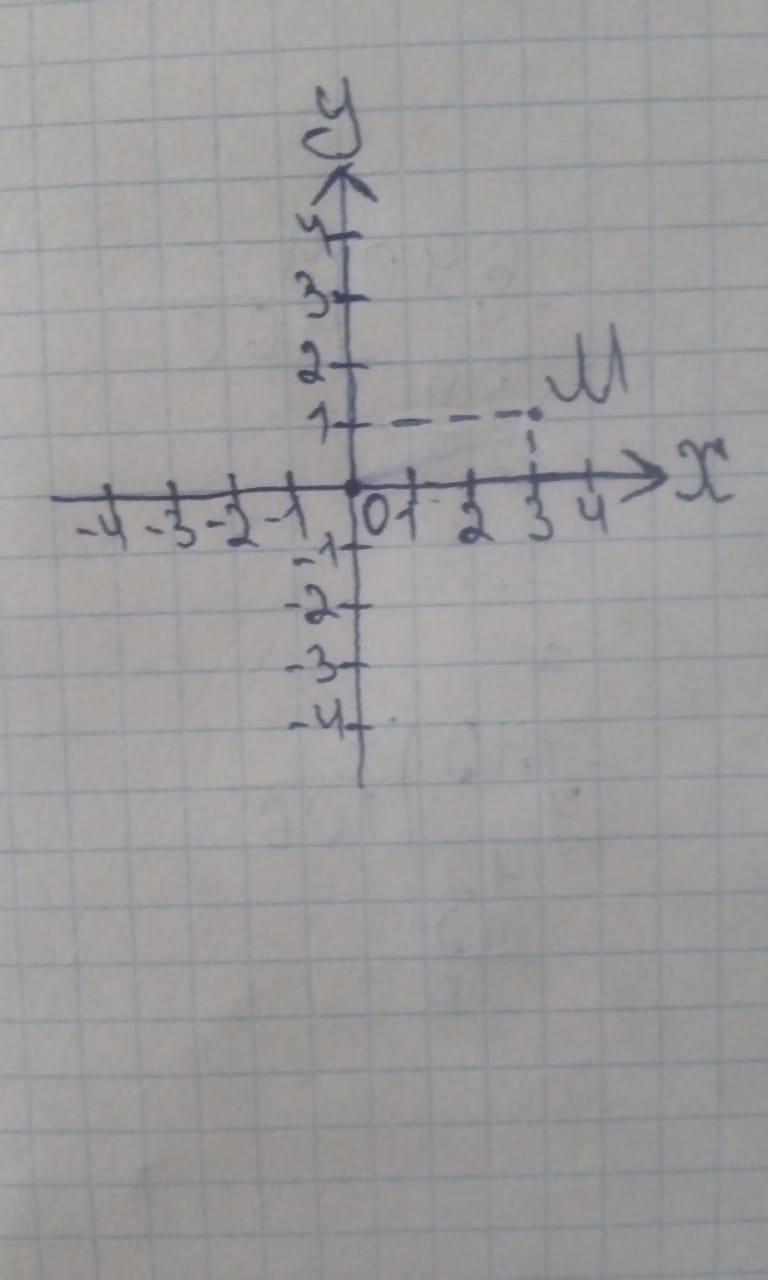 y
4
3
2
M
1
x
-4 -3 -2 -1 0 1 2 3 4
-1
-2
-3
-4